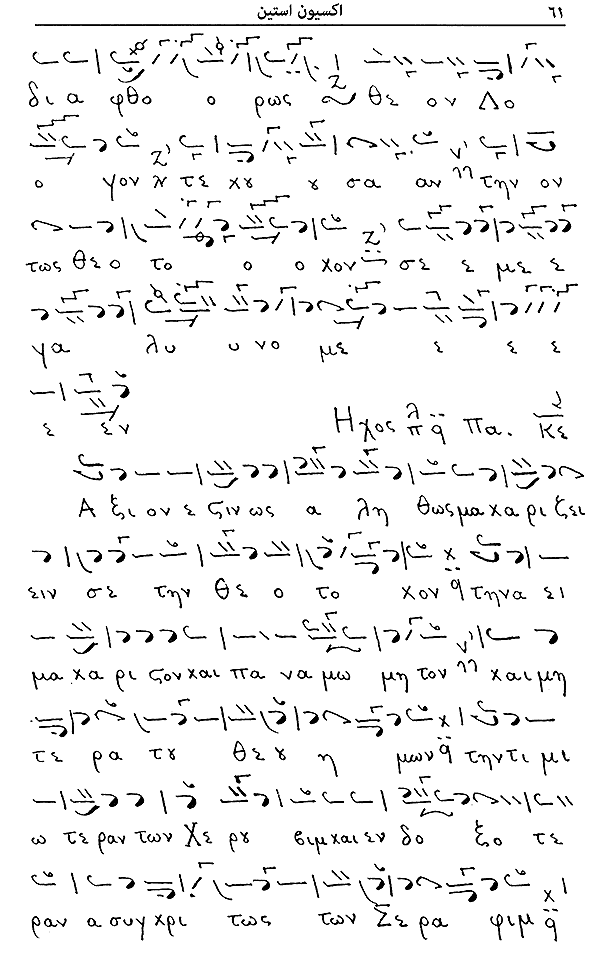 اكسيون استين ٦١
δι α φθο ο ρως θε ον Λο
ο γον τε κου ου σα αν την ον
τως Θε ο το ο ο κον σε ε με ε
γα λυ υ νο με ε ε ε
ε εν Ηχος λ π q πα. Κε
Α ξι ον ε ςιν ως α λη θως μα κα ρι ζει
ειν σε την Θε ο το κον q την α ει
μα κα ρι ςον και πα να μω μη τον και μη
τε ρα του Θε ου η μων q την τι μι
ω τε ραν των Χε ρου βιμ και εν δο ξο τε
ραν α συγ κρι τως των Σε ρα φιμ q